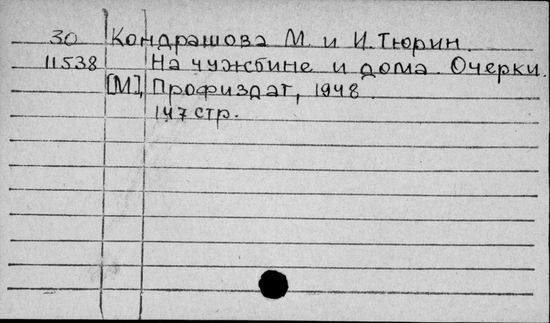 30 Кондрашова М. и И. Тюрин.
11538 На чужбине и дома. Очерки.
[М], Профиздат, 1948.
147 стр.